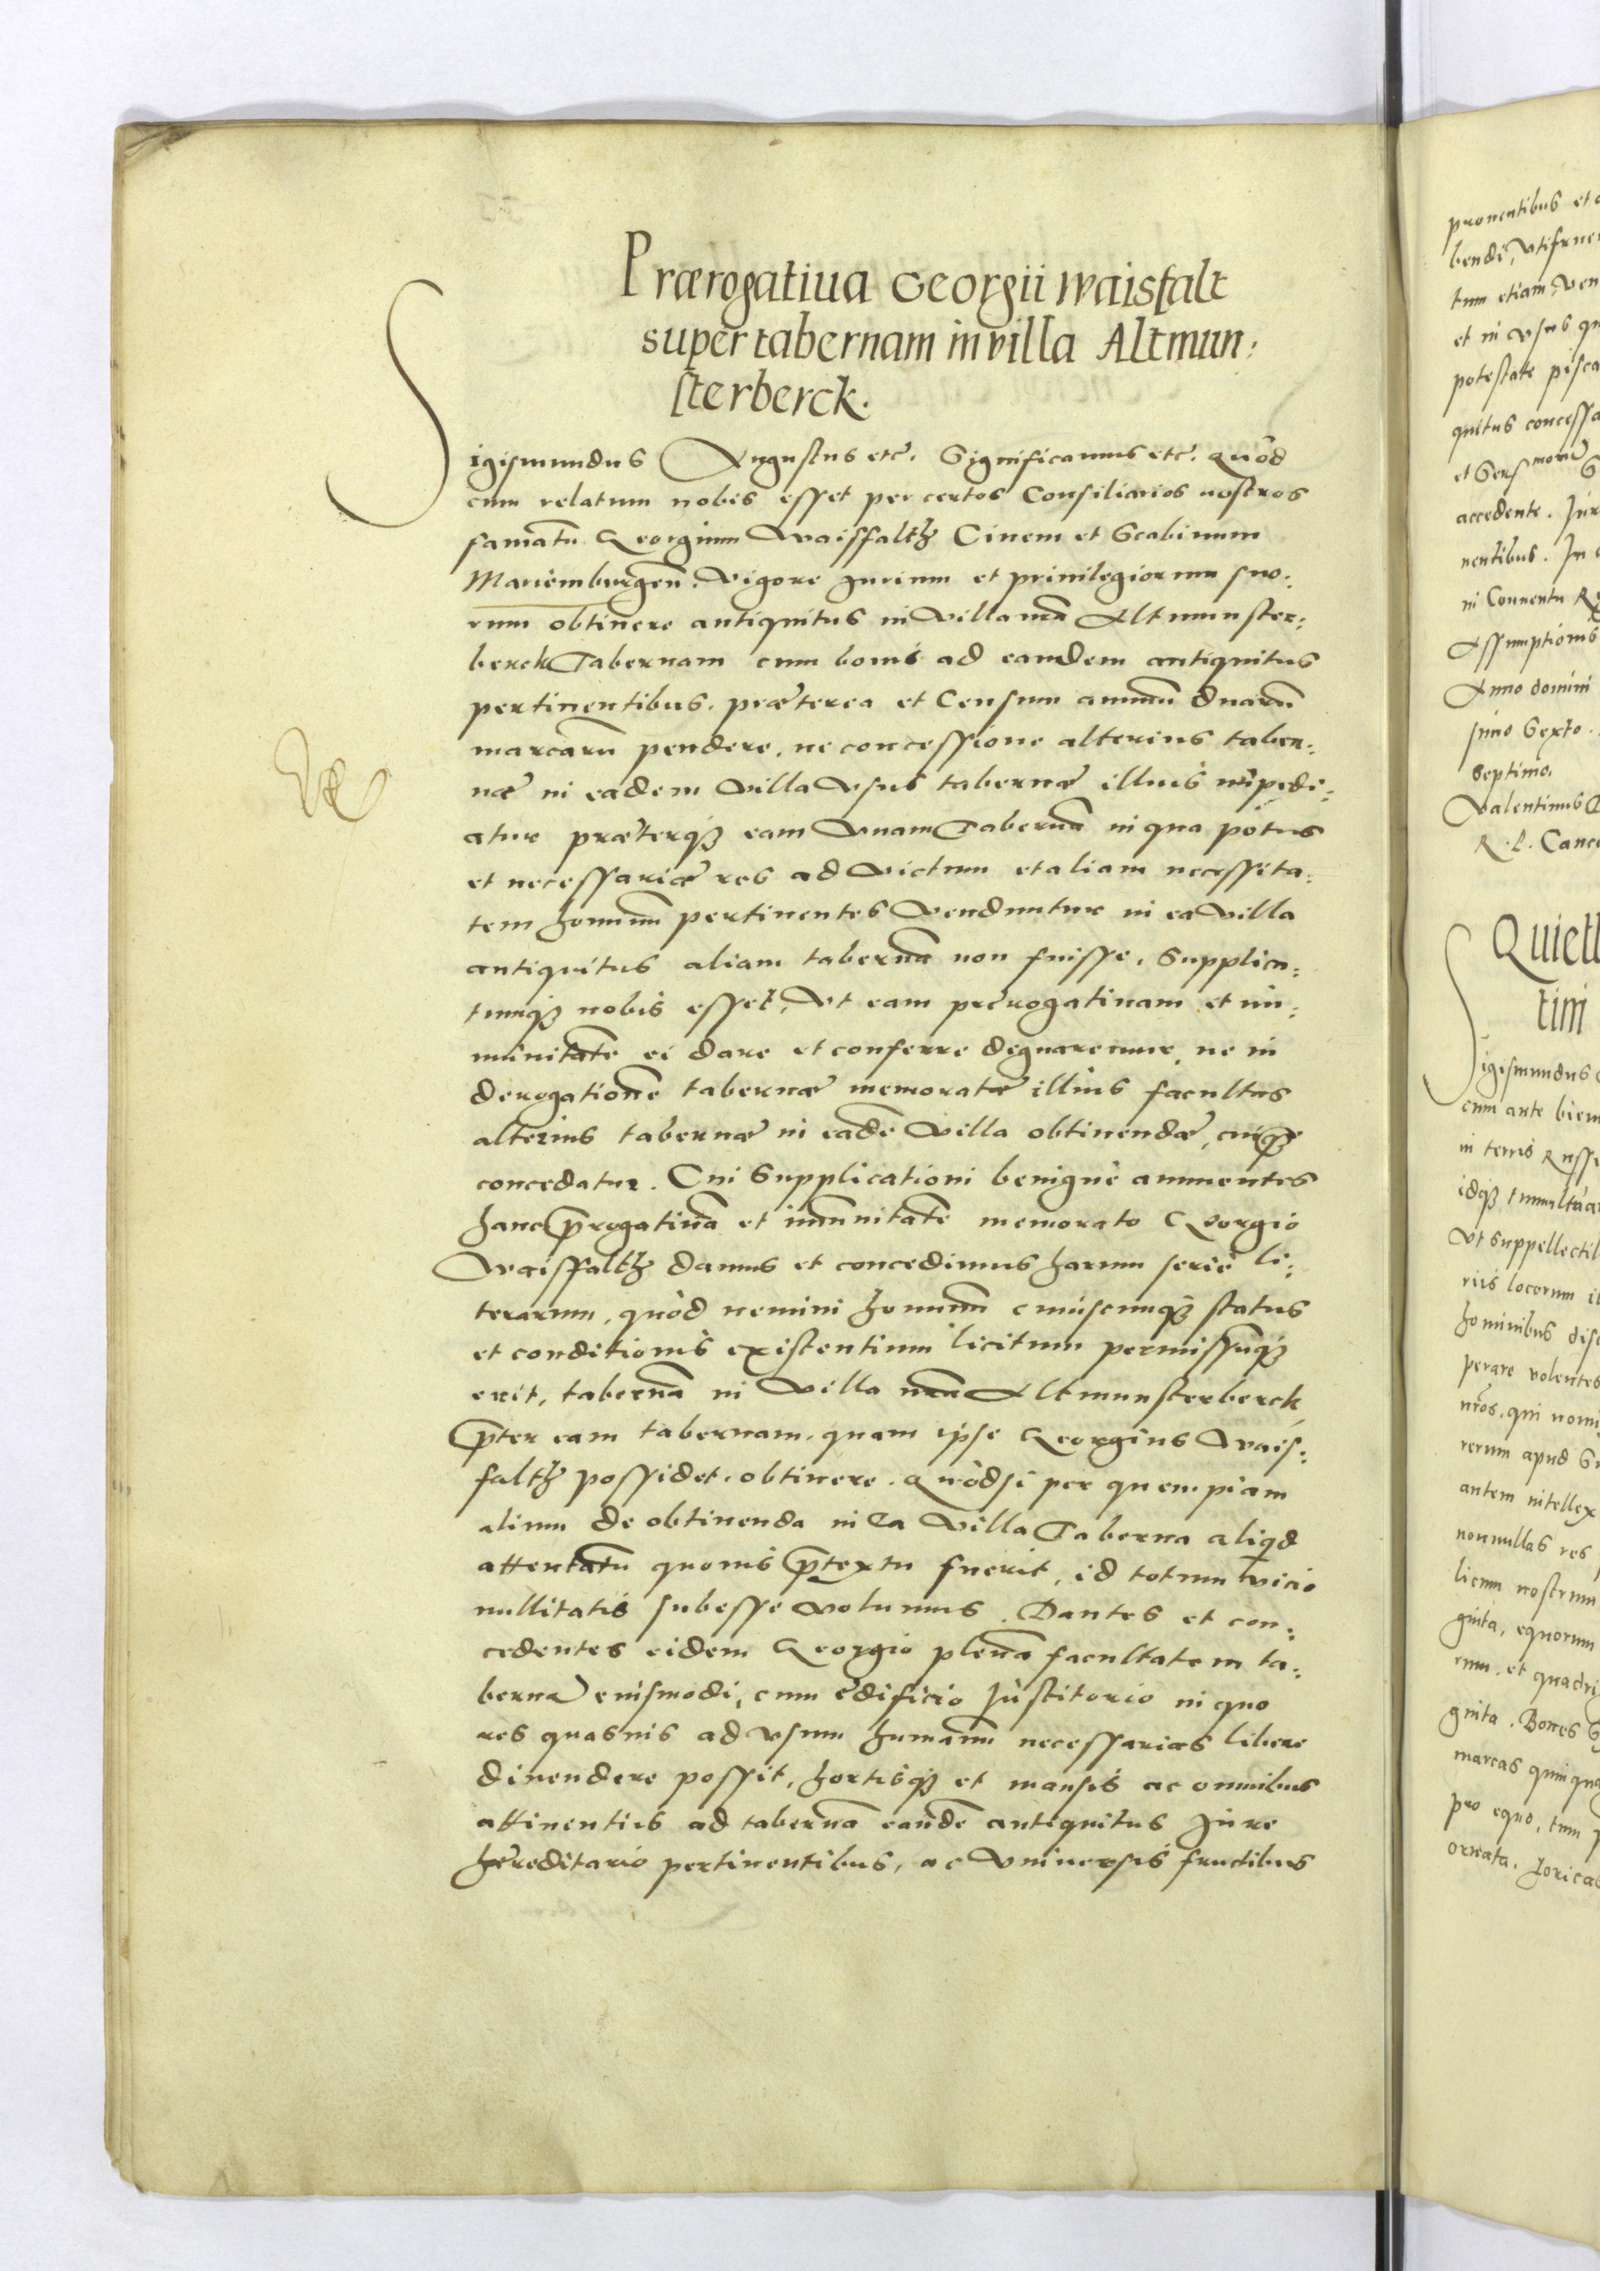 Prærogatiua Georgii Waisfalt
super tabernam in villa Altmun:
sterberck.
Sigismundus Augustus etc. Significamus etc. Quòd
cum relatum nobis esset per certos Consiliarios nostros
famatū Georgium Waisfaltħ Ciuem et Scabinum
Mariemburgeñ. Vigore Jurium et priuilegiorum suo:
rum obtinere antiquitus in Villa nr̃a Altmunster:
berck Tabernam cum bonis ad eamdem antiquitus
pertinentibus, præterea et Censum annuū duarū
marcarū pendere, ne concessione alterius taber:
næ in eadem Villa Vsus tabernæ illius impedi:
atur præterq̃ eam Vnam Tabernã in qua potus
et necessariæ res ad Victum et aliam necessita:
tem hominū pertinentes Venduntur in ea Villa
antiquitus aliam tabernã non fuisse, Supplica:
tumq; nobis esset, Vt eam prerogatiuam et im:
munitatē ei dare et conferre dignaremur, ne in
derogationē tabernæ memoratæ illius facultas
alterius tabernæ in eadē Villa obtinendæ, cuiq̃
concedatur. Cui Supplicationi benignè annuentes
hanc p̃rogatiuã et imunitatē memorato Georgio
Waisfaltħ damus et concedimus harum serie li:
terarum, quòd nemini hominū cuiuscunq; status
et conditionis existentium licitum permissumq;
erit, tabernã in Villa nr̃a Altmunsterberck
p̃ter eam tabernam, quam ipse Georgius Wais:
faltħ possidet, obtinere. Quòdsi per quempiam
alium de obtinenda in ea Villa Taberna aliqd
attentatū quouis p̃textu fuerit, id totum vicio
nullitatis subesse Volumus. Dantes et con:
cedentes eidem Georgio plenã facultatem ta:
bernæ eiusmodi, cum ędificio Justitorio in quo
res quasuis ad vsum humanū necessarias libere
diuendere possit, hortisq; et mansis ac omnibus
attinentiis ad tabernã eandē antiquitus Jure
hęreditario pertinentibus, ac Vniuersis fructibus
prouentibus et
bendi, Vtifrue
tum etiam Ven
et in Vsus qu
potestate pisca
quitus concessa
accedente. Jur
nentibus. In
in Conuentu
Assumptionis
Anno domini
simo Sexto.
Septimo.
Valentinus
R. P. Canc
Quiet
tini
Sigismundus
cum ante bien
in terris Russi
idq; tumultua
Vt suppellectil
riis locorum il
hominibus disc
perare volentes
nr̃os, qui nomi
rerum apud
autem intellex
nonnullas res
licum nostrum
ginta, equorum
rum, et quadri
ginta. Boues
marcas quinqua
pro equo, tum
ornata, Lorica